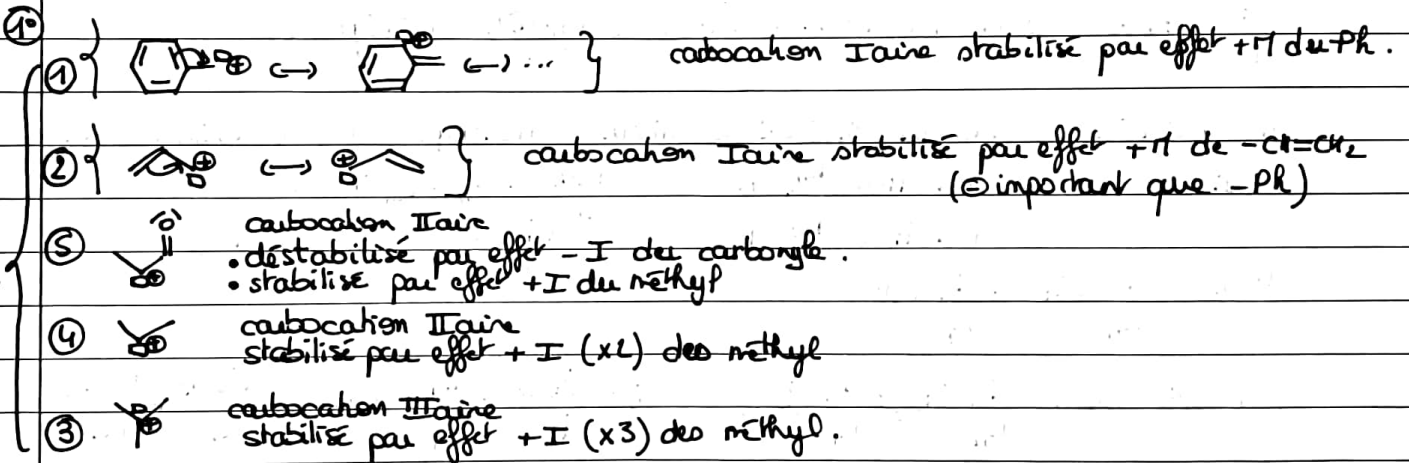 1°
① { ⊕ ↔ ⊕ ↔ ... } carbocation Iaire stabilisé par effet +M du Ph.
② { ⊕ ↔ ⊕ } carbocation Iaire stabilisé par effet +M de -CH=CH2
(⊖ important que -Ph)
⑤ O ⊕ carbocation IIaire
• déstabilisé par effet - I du carbonyle.
• stabilisé par effet +I du méthyl
④ ⊕ carbocation IIaire
stabilisé par effet + I (x2) des méthyl
③ ⊕ carbocation IIIaire
stabilisé par effet +I (x3) des méthyl.